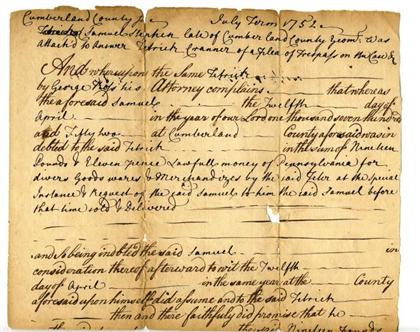 Cumberland County ss July Term 1752
Samuel Stephen Late of Cumberland County Yeom. was
attach'd to Answer Petrick Cranner of a Plea of Trespass on the Case &
And whereupon the Same Petrick
by George Ross his Attorney complains that whereas
the aforesaid Samuel the Twelfth day of
April in the year of our Lord one thousand seven hundred
and Fifty two at Cumberland County aforesaid was in
debted to the said Petrick in the sum of Nineteen
Pounds & Eleven pence Lawfull money of Pennsylvania for
divers Goods wares & Merchandizes by the said Petr at the Special
Instance & Request of the said Samuel to him the said Samuel before
that time sold & delivered
and so being indebted the said Samuel in
consideration thereof afterward to wit the Twelfth
day of April in the same year at the County
aforesaid upon himself did assume and to the said Petrick
then and there faithfully did promise that he
the said Nineteen Pounds